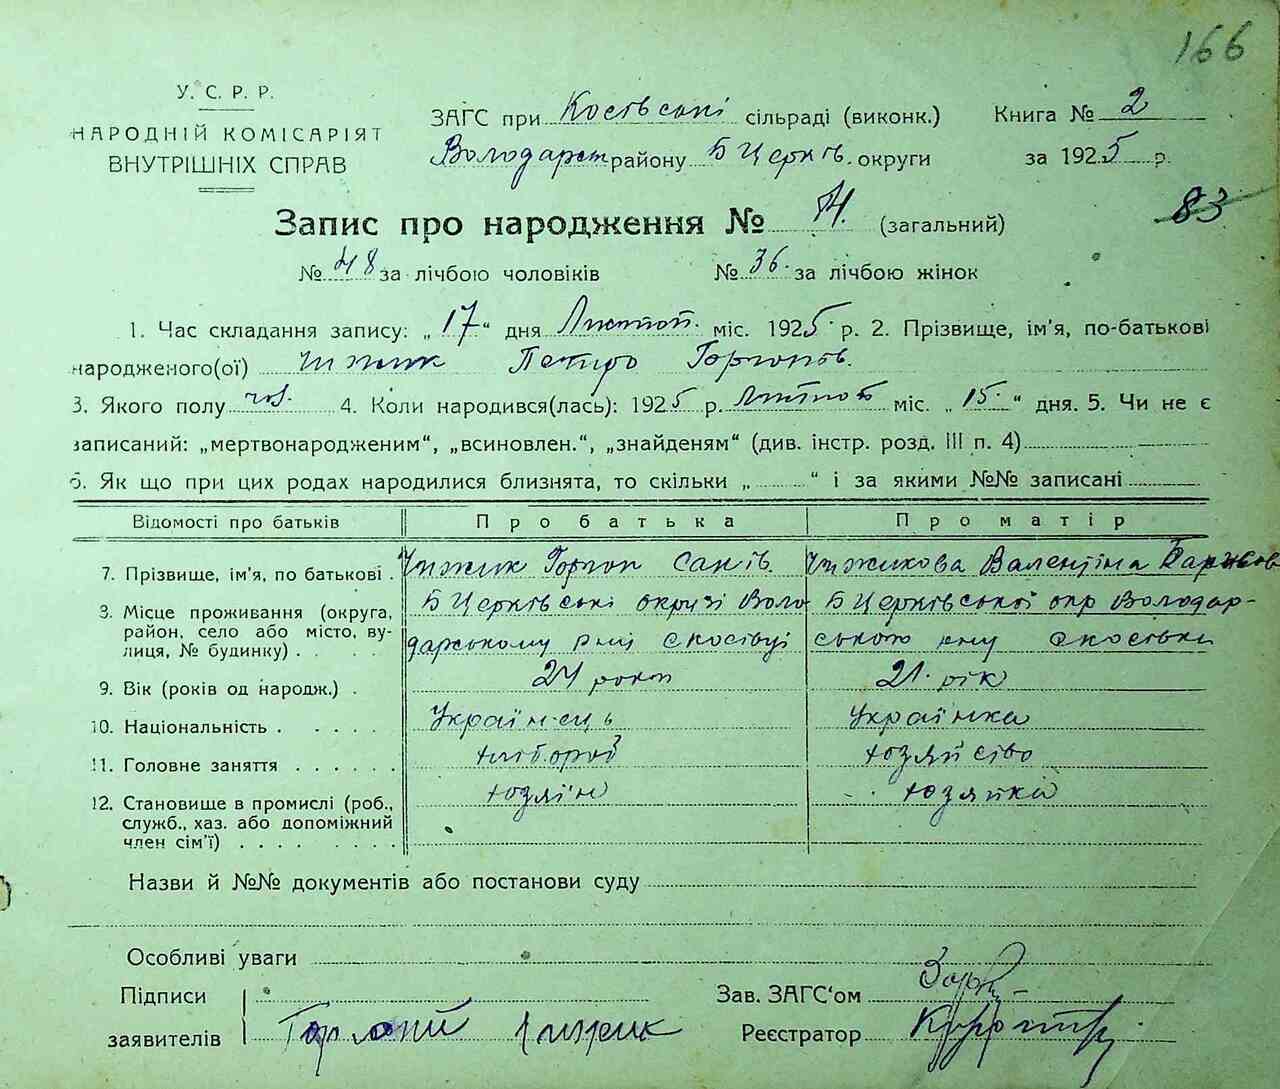 166
У. С. Р. Р.
НАРОДНІЙ КОМІСАРІЯТ
ВНУТРІШНІХ СПРАВ
ЗАГС при Косівські сільраді (виконк.)
Володарск району Б Церків. округи
Книга № 2
за 1925 р.
83
Запис про народження № (загальний)
№ 48 за лічбою чоловіків № 36. за лічбою жінок
1. Час складання запису: „17“ дня Листоп. міс. 1925 р. 2. Прізвище, ім'я, по-батькові
народженого(ої) Чижик Петро Горгонів.
3. Якого полу чол. 4. Коли народився(лась): 1925 р. міс. „15.“ дня. 5. Чи не є
записаний: „мертвонародженим“, „всиновлен.“, „знайденям“ (див. інстр. розд. III п. 4)
6. Як що при цих родах народилися близнята, то скільки „ “ і за якими №№ записані
Відомості про батьків Про батька Про матір
7. Прізвище, ім'я, по батькові . Чижик Горгон Чижикова Валентіна
8. Місце проживання (округа, район, село або місто, вулиця, № будинку) . . . . Б Церківські окрузі Воло- Б Церківської окр Володар-
дарському
9. Вік (років од народж.) . 24 роки 21. рік
10. Національність . . . . . Українець Українка
11. Головне заняття . . . . . . хлібороб хозяйство
12. Становище в промислі (роб., служб., хаз. або допоміжний член сім'ї) . . . . . . . . . хозяїн хозяйка
Назви й №№ документів або постанови суду
Особливі уваги
Підписи
заявителів Чижик
Зав. ЗАГС‘ом
Реєстратор